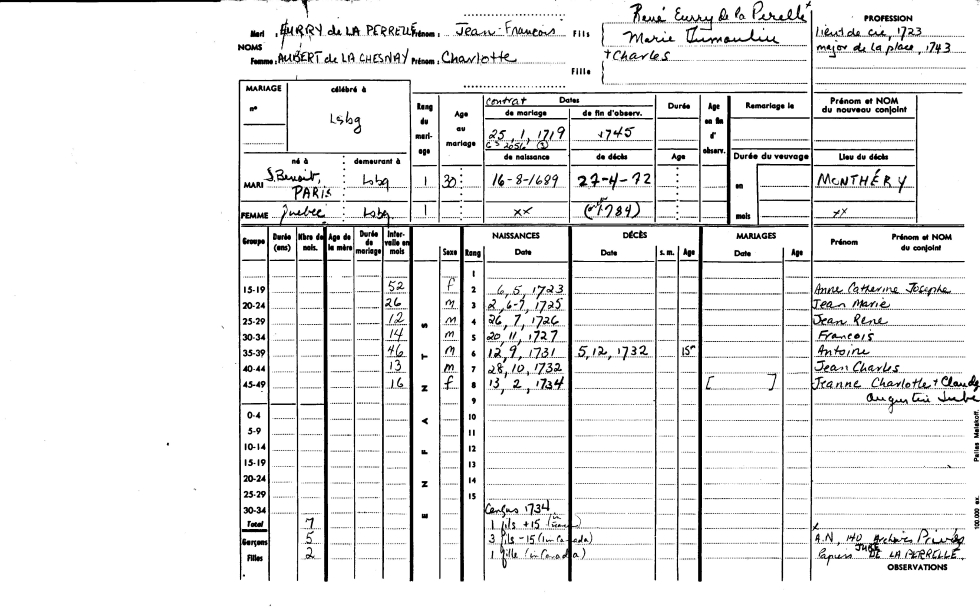 René Eurry de la Perelle x
PROFESSION
Mari : EURRY de LA PERRELLE Prénom : Jean-François Fils Marie Dumoulin
lieut de cie, 1723
NOMS
major de la place, 1743
Femme : AUBERT de LA CHESNAY Prénom : Charlotte + Charles
Fille
MARIAGE célébré à Rang du mari-age Age au mariage contrat Dates Durée Age en fin d' observ. Remariage le Prénom et NOM du nouveau conjoint
n° Lsbg de mariage de fin d'observ.
25, 1, 1719 +1745
G 3 2056 (3)
né à demeurant à de naissance de décès Age Durée du veuvage Lieu du décès
MARI S. Benoit, PARIS Lsbg 1 30 16-8-1689 27-4-72 en MONTHÉRY
FEMME Quebec Lsbg 1 xx 1784) mois xx
Groupe Durée (ans) Nbre de nais. Age de la mère Durée de mariage Inter-valle en mois ENFANTS Sexe Rang NAISSANCES Date DÉCÈS Date s. m. Age MARIAGES Date Age Prénom Prénom et NOM du conjoint
1
15-19 52 f 2 6, 5, 1723 Anne Catherine Josephe
20-24 26 m 3 2, 6-7, 1725 Jean Marie
25-29 12 m 4 26, 7, 1726 Jean René
30-34 14 m 5 20, 11, 1727 François
35-39 46 m 6 12, 9, 1731 5, 12, 1732 15m Antoine
40-44 13 m 7 28, 10, 1732 Jean Charles
45-49 16 f 8 13, 2, 1734 [ ] Jeanne Charlotte + Claude
9 Augustin
0-4 10
5-9 11
10-14 12
15-19 13
20-24 14
25-29 15
30-34 Census 1734
Total 7 1 fils +15 (in
Garçons 5 3 fils -15 (in Canada)
Filles 2 1 fille (in Canada)
x
A.N, 140 Archives Privées
Papiers JUBE DE LA PERRELLE
OBSERVATIONS
100.000 ex. Pallas Malakoff.